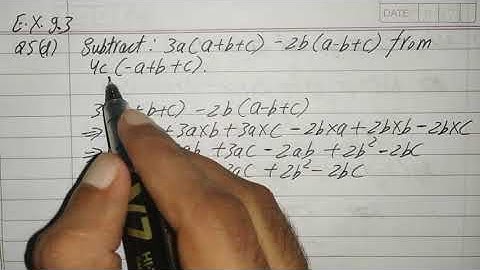 DATE
E.X. 9.3
Q5(d) Subtract: 3a(a+b+c) - 2b(a-b+c) from
4c(-a+b+c).
+b+c) - 2b(a-b+c)
⇒ + 3a×b + 3a×c - 2b×a + 2b×b - 2b×c
⇒ ab + 3ac - 2ab + 2b² - 2bc
3ac + 2b² - 2bc